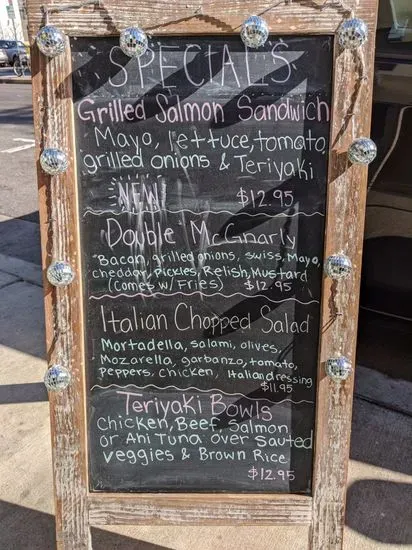 SPECIALS
Grilled Salmon Sandwich
Mayo, lettuce, tomato,
grilled onions & Teriyaki
NEW $12.95
Double McGnarly
Bacon, grilled onions, swiss, Mayo,
cheddar, Pickles, Relish, Mustard
(Comes w/ Fries) $12.95
Italian Chopped Salad
Mortadella, salami, olives,
Mozarella, garbanzo, tomato,
Peppers, Chicken, Italian dressing
$11.95
Teriyaki Bowls
Chicken, Beef, Salmon
or Ahi Tuna over Sauted
veggies & Brown Rice
$12.95